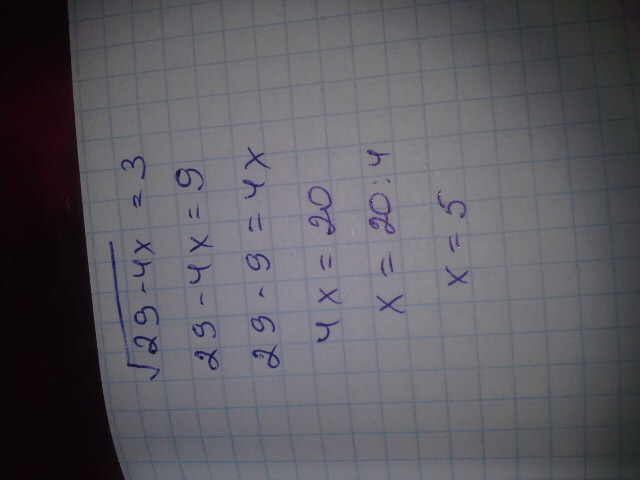 √29-4x = 3
29-4x=9
29-9=4x
4x=20
x=20:4
x=5